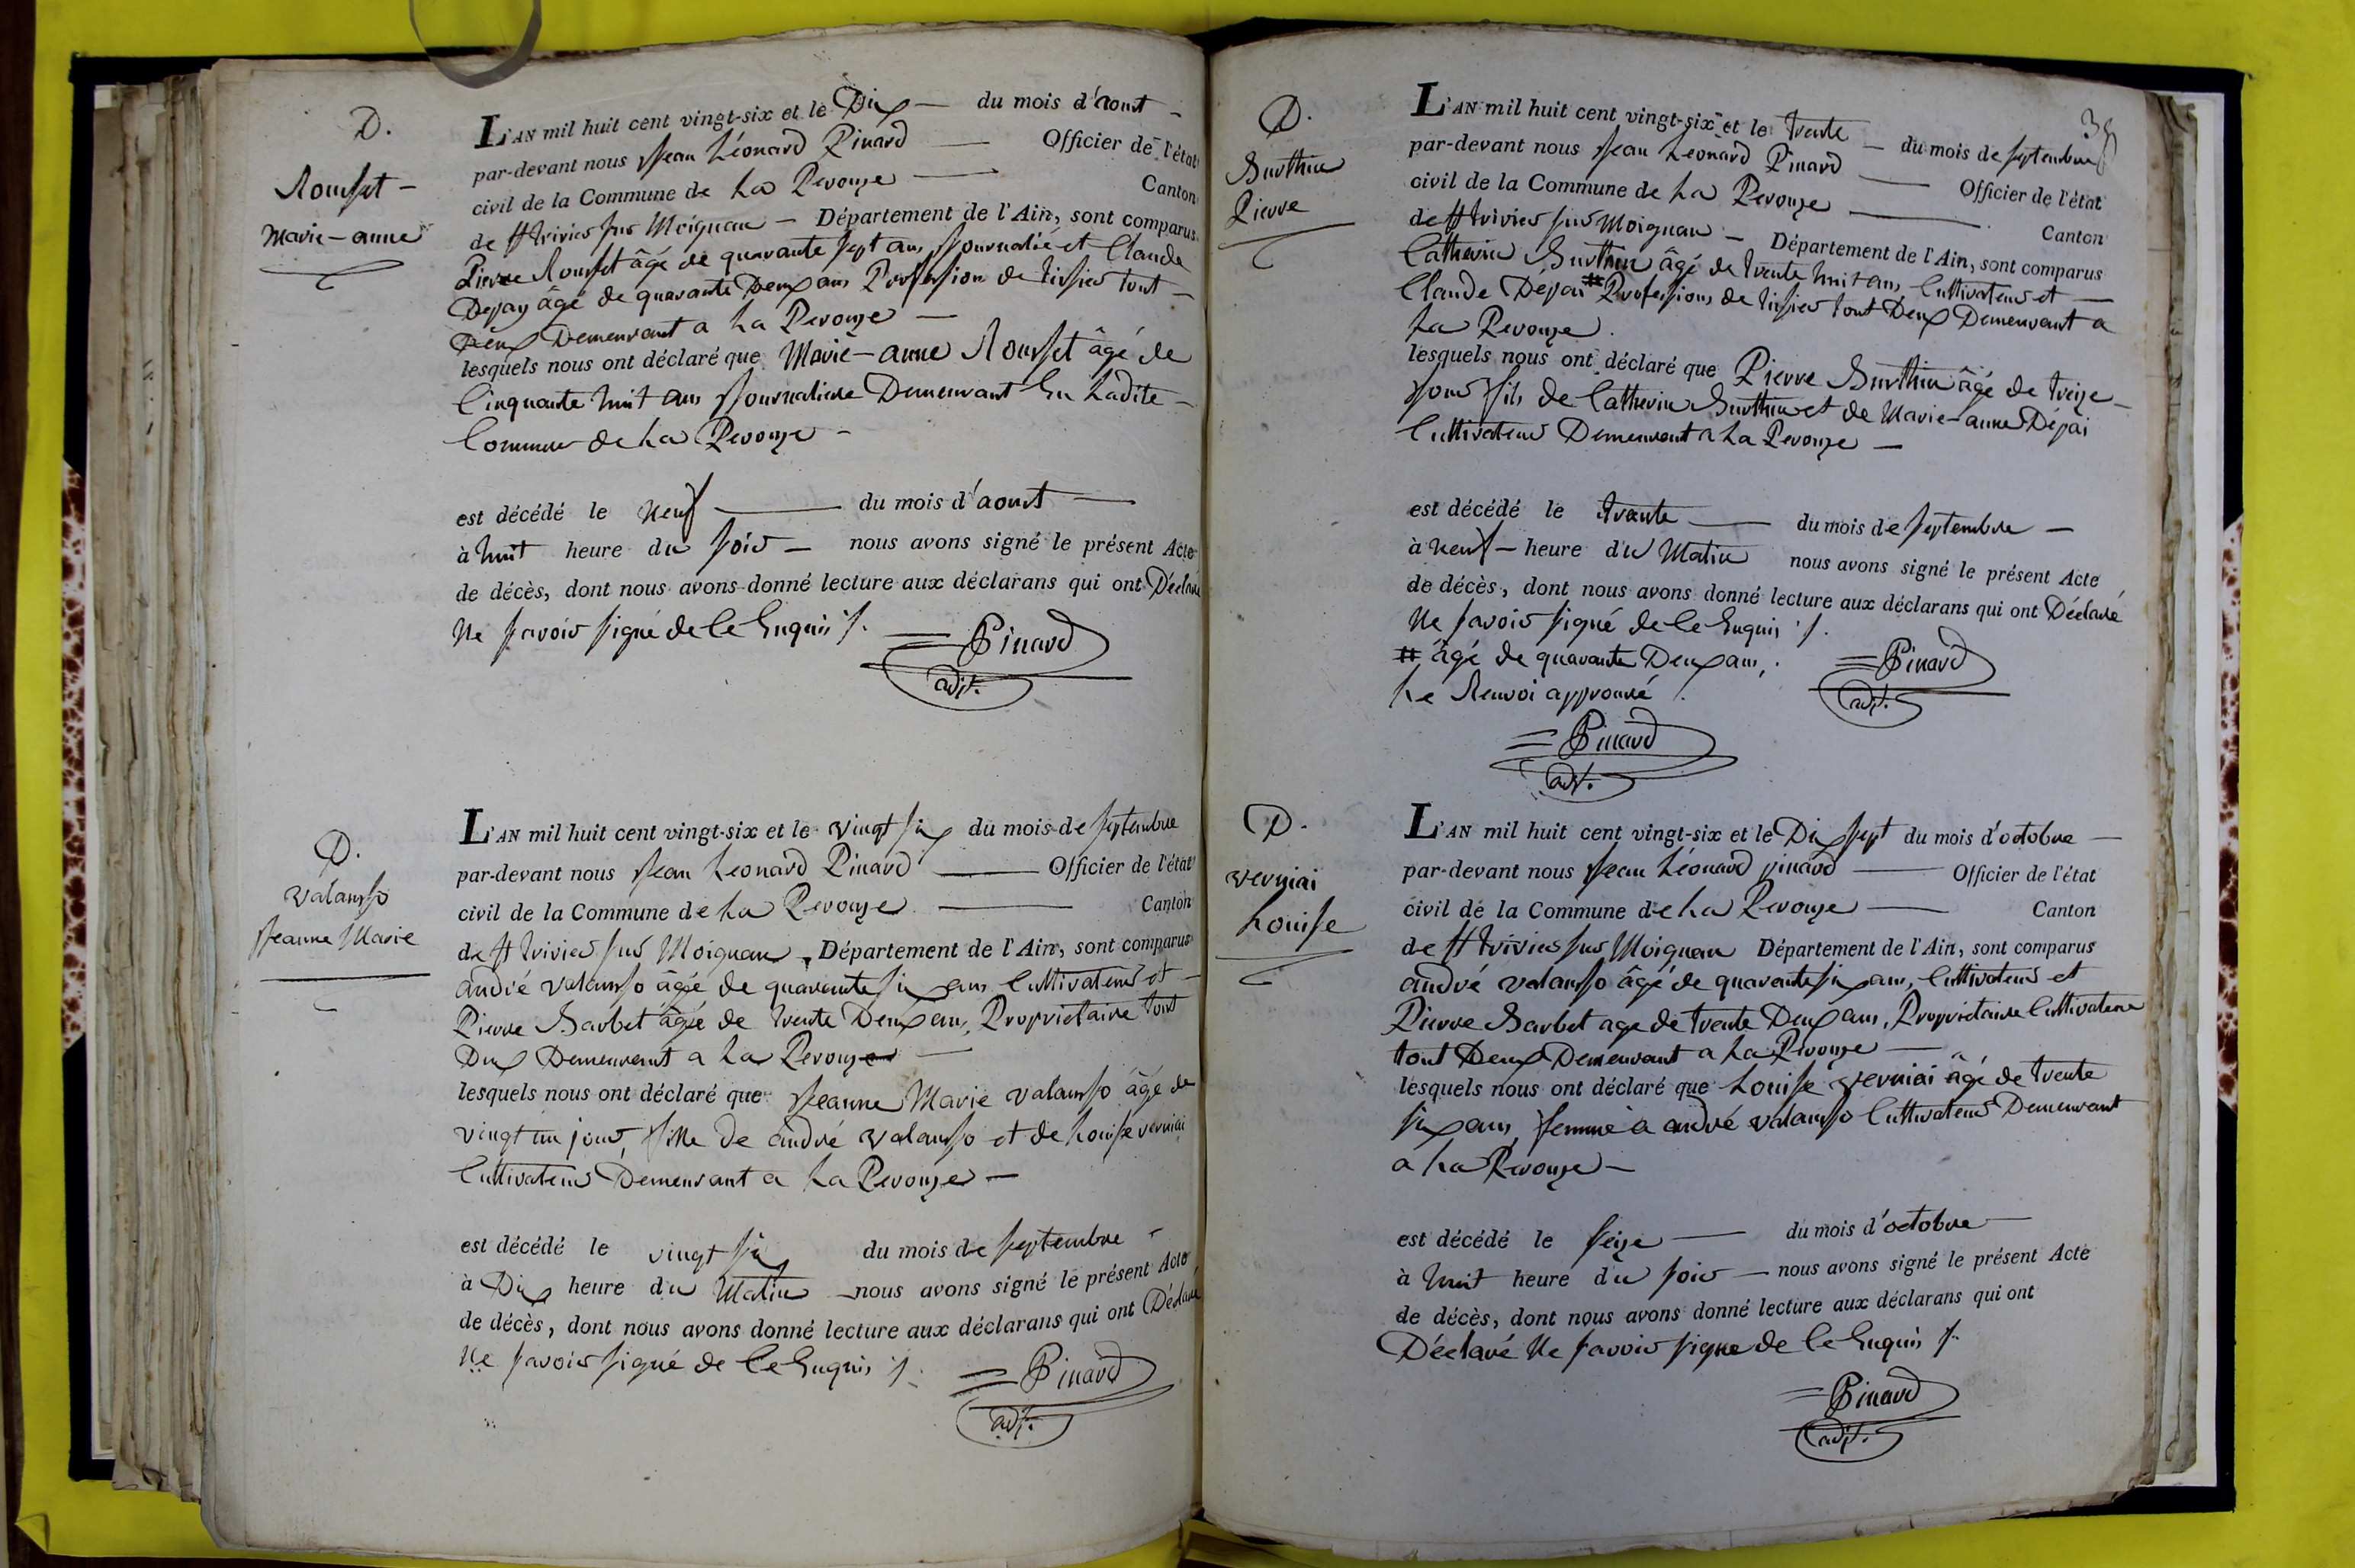 D.
Rousset –
Marie-anne
L'AN mil huit cent vingt-six et le Dix — du mois d'aoust –
par-devant nous Jean Léonard Pinard — Officier de l'état
civil de la Commune de La Perouze — Canton
de St trivier sur Moignan — Département de l'Ain, sont comparus
Pierre Rousset âgé de quarante sept ans Journalié et Claude
Dejay âgé de quarante Deux ans Profession de tissier tout –
Deux Demeurant a La Perouze —
lesquels nous ont déclaré que Marie-anne Rousset âgé de
Cinquante huit ans Journaliere Demeurant En Ladite –
Commune de La Perouze –
est décédé le neuf — du mois d'aoust —
à huit heure du soir — nous avons signé le présent Acte
de décès, dont nous avons donné lecture aux déclarans qui ont Déclaré
Ne savoir signé de Ce Enquis ·/.
Pinard
adjt.
D.
valansso
Jeanne Marie
L'AN mil huit cent vingt-six et le vingt six du mois de septembre
par-devant nous Jean Léonard Pinard — Officier de l'état
civil de la Commune de La Perouze — Canton
de St trivier sur Moignan – Département de l'Ain, sont comparus
andré valansso âgé de quarante six ans Cultivateur et –
Pierre Barbet âgé de trente Deux ans, Propriétaire tout
Deux Demeurant a La Perouze —
lesquels nous ont déclaré que Jeanne Marie valansso âgé de
vingt un jour, fille de andré valansso et de Louise verniai
Cultivateur Demeurant a La Perouze –
est décédé le vingt six du mois de septembre –
à Dix heure du Matin – nous avons signé le présent Acte
de décès, dont nous avons donné lecture aux déclarans qui ont Déclaré
Ne savoir signé de Ce Enquis ·/.
Pinard
adjt.
D.
Burthin
Pierre
L'AN mil huit cent vingt-six et le trente — du mois de septembre
par-devant nous Jean Léonard Pinard — Officier de l'état
civil de la Commune de La Perouze — Canton
de St trivier sur Moignan — Département de l'Ain, sont comparus
Catherin Burthin âgé de trente huit ans, Cultivateur et —
Claude Déjai # Professions de tissier tout Deux Demeurant a
La Perouze.
lesquels nous ont déclaré que Pierre Burthin âgé de treize –
jour fils de Catherin Burthin et de Marie-anne Déjai
Cultivateur Demeurant a La Perouze —
est décédé le trente — du mois de septembre —
à neuf — heure du Matin nous avons signé le présent Acte
de décès, dont nous avons donné lecture aux déclarans qui ont Déclaré
Ne savoir signé de Ce Enquis ·/.
# âgé de quarante Deux ans,.
Pinard
adjt.
Le Renvoi approuvé.
Pinard
adjt.
D.
verniai
Louise
L'AN mil huit cent vingt-six et le Dix sept du mois d'octobre —
par-devant nous Jean Léonard pinard — Officier de l'état
civil de la Commune de La Perouze — Canton
de St trivier sur Moignan Département de l'Ain, sont comparus
andré valansso âgé de quarante six ans, Cultivateur et
Pierre Barbet age de trente Deux ans, Propriétaire Cultivateur
tout Deux Demeurant a La Perouze —
lesquels nous ont déclaré que Louise verniai âgé de trente
six ans, femme a andré valansso Cultivateur Demeurant
a La Perouze –
est décédé le seize — du mois d'octobre —
à huit heure du soir — nous avons signé le présent Acte
de décès, dont nous avons donné lecture aux déclarans qui ont
Déclaré Ne savoir signe de Ce Enquis ·/.
Pinard
adjt.